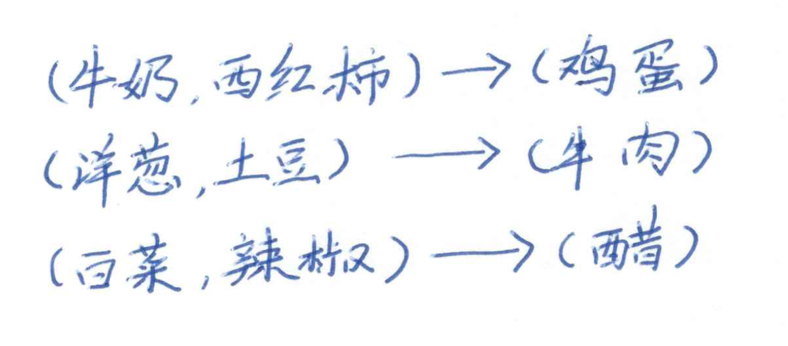 (牛奶,西红柿)→(鸡蛋)
(洋葱,土豆)→(牛肉)
(白菜,辣椒)→(醋)